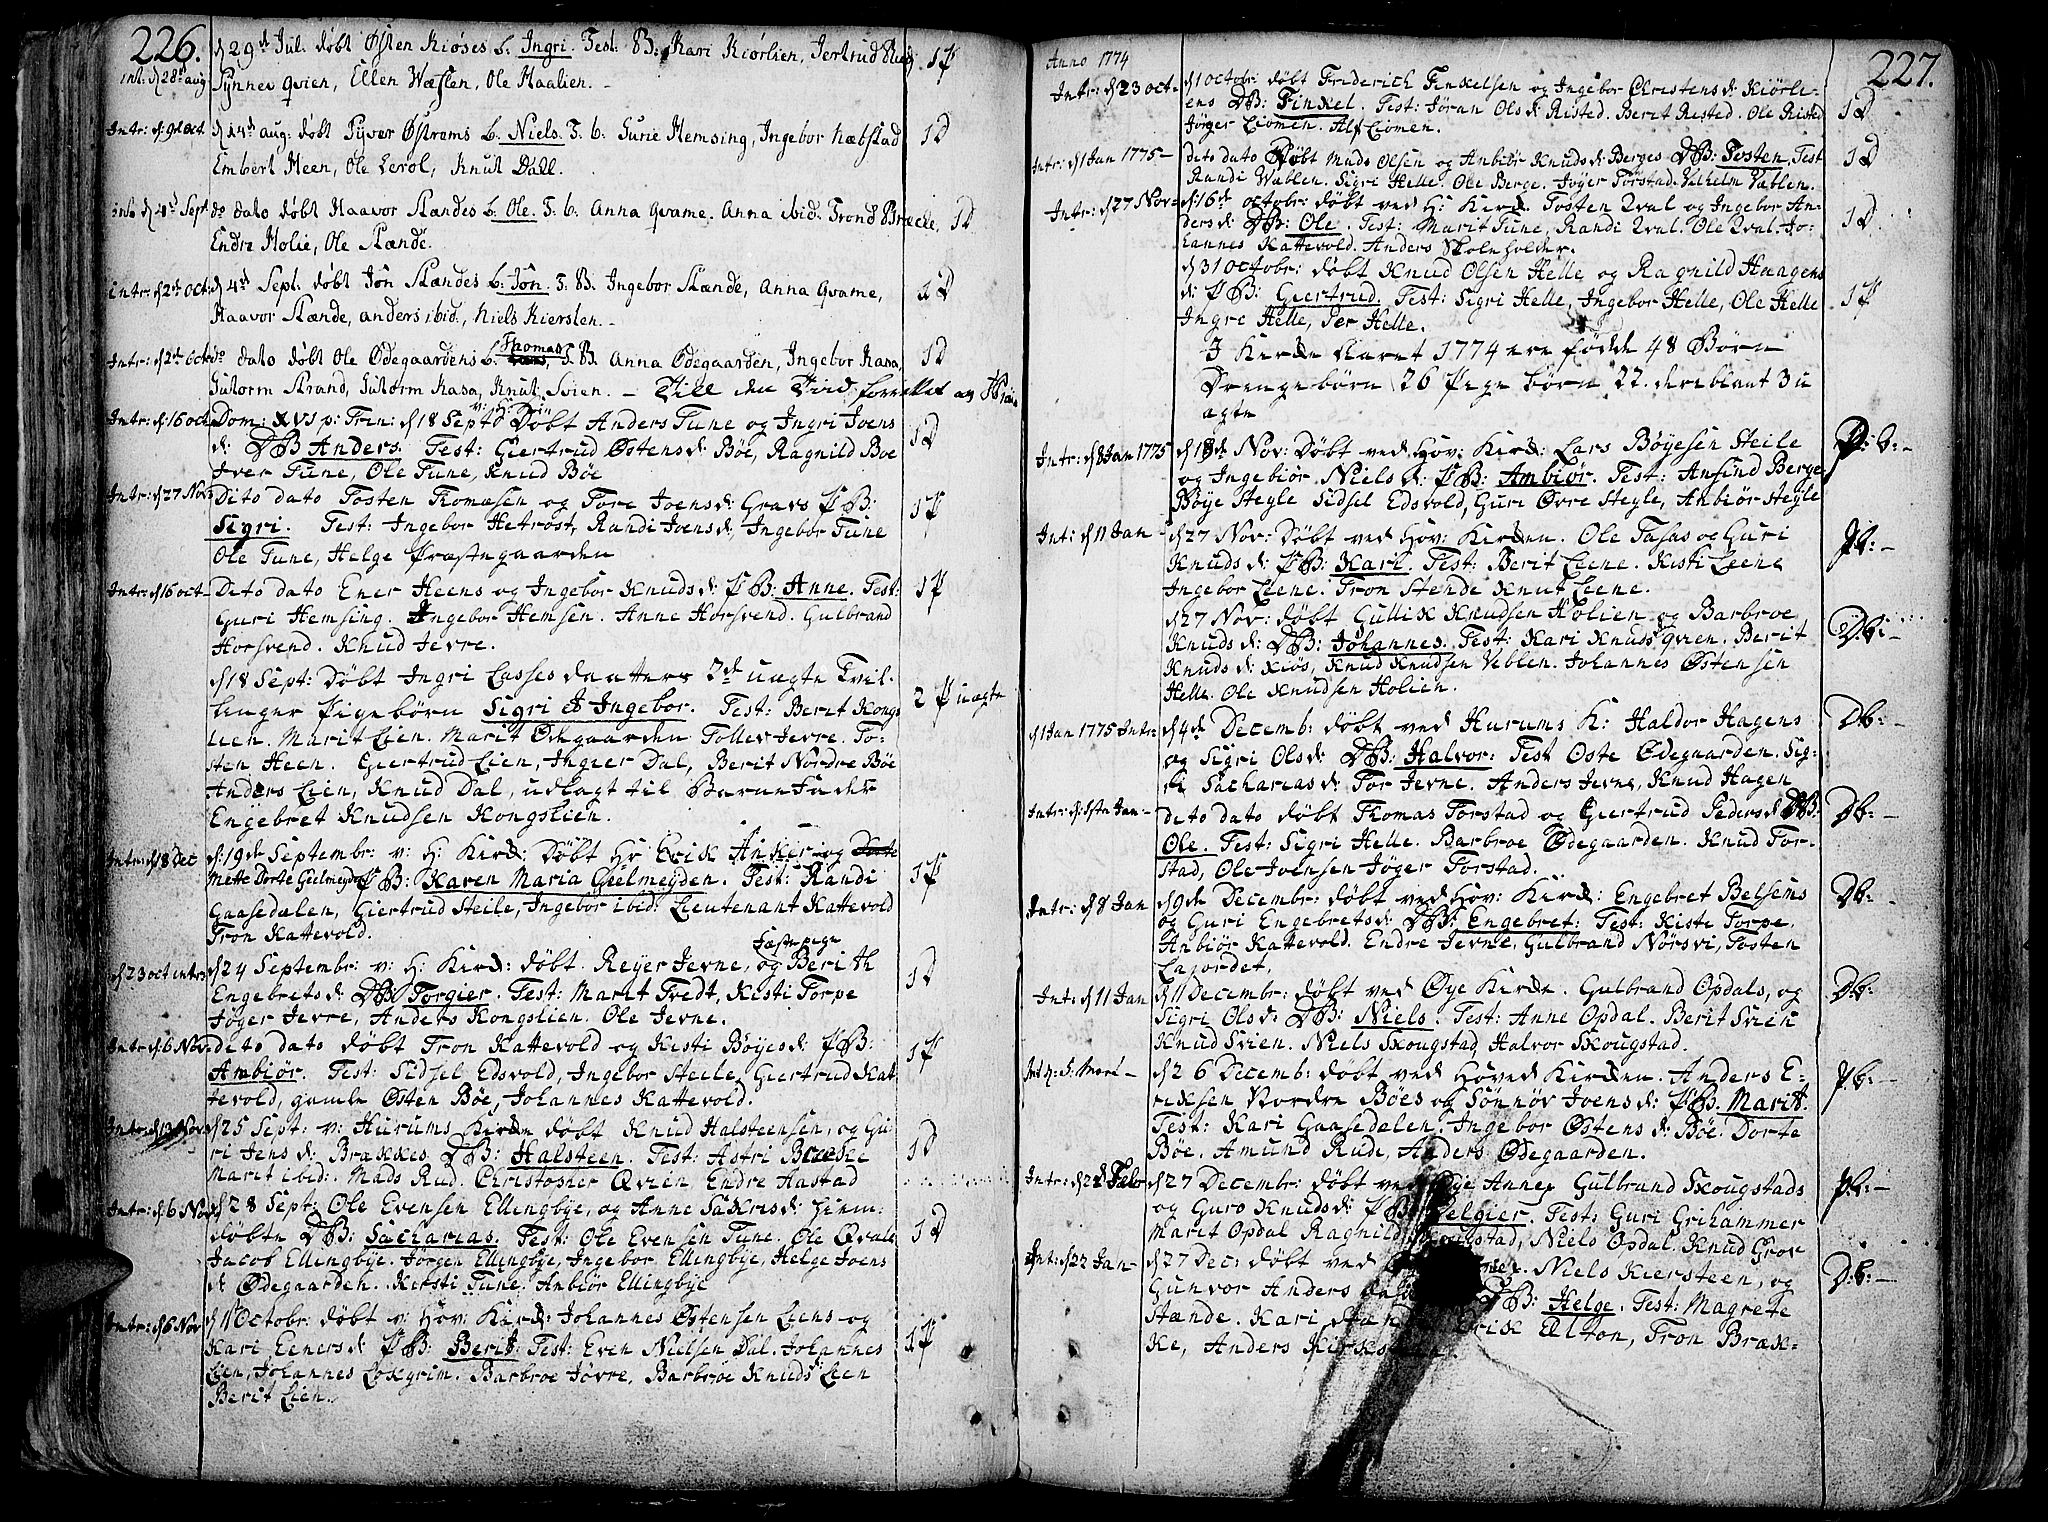 226.
d 29de Jul. døbt Østen Kiøses b. Ingri. Test. B: Kari Kiørlien, Jertrud
int: d 28de aug
Synnev Qvien, Ellen Wæslen, Ole Haalien.
1 P
Intr: d: 9de Oct.
d 14de aug: døbt Syver Østrems b. Niels. T. b: Gurie Hemsing, Ingebor Næbstad
Embert Heen, Ole Lerol, Knut Dall.
1 D
d 4de Sept
do dato døbt Haavor Stændes b. Ole. T. b. Anna Qvame. Anna ibid. Trond Brække,
Endre Holie, Ole Stænde.
1 D
intr: d 2de Oct:
d 4de Sept. døbt Jon Stændes b. Jon. T. B. Ingebor Stænde, Anna Qvame,
Haavor Stænde, anders ibid., Niels Kiersten.
1 D
Intr: d 2de Oct
do dato døbt Ole Ødegaardens b. Thomas, T. B. Anna Ødegaarden, Ingebor Rasa,
Gutorm Strand, Gutorm Rasa, Knut Svien. Till den Tiid forrettet av
1 D
Intr: d: 16 oct
Dom: XVI p: Trin: d 18 Sept v: H: Døbt Anders Tune og Ingri Joens
d: DB Anders. Test: Giertrud Østens d: Bøe, Ragnild Boe
Iver Tune, Ole Tune, Knud Bøe
1 D
Intr: d 27 Nov
Dito dato Tosten Thomasen og Tore Joens d: Gravs PB:
Sigri. Test: Ingebor Hetrost, Randi Joens d: Ingebor Tune
Ole Tune, Helge Præstegaarden
1 P
Intr: d 16 oct
Dito dato Ener Heens og Ingebor Knuds d: PB: Anne. Test:
Guri Hemsing. Ingebor Hemsen. Anne Horsvend. Gulbrand
Horsvend. Knud Jevre.
1 P
d 18 Sept: Døbt Ingri Lasses daatters 2de uagte Tvil-
linger Pigebørn Sigri et Ingebor. Test: Berit Kongs
lien. Marit Lien. Marit Ødegaarden Tollev Jevre. To-
sten Heen. Giertrud Lien, Ingier Dal, Berit Nordre Bøe
Anders Lien, Knud Dal, udlagt til Barne Fader
Engebret Knudsen Kongslien.
2 P uagte
Intr: d 18 Dec
d: 19de Septembr: v: H: Kirk: Døbt Hr Erik Anker og
Mette Dorte Gielmeyden PB: Karen Maria Gielmeyden. Test: Randi
Gaasedalen, Giertrud Steile, Ingebor ibid: Lieutenant Kattevold
Tron Kattevold.
1 P
d 23 oct intr:
d 24 Septembr: v: H: Kirk: døbt. Reyer Jevne, og Berith
Engebrets d: DB: Torgier. Test: Marit Tvedt, Kisti Torpe
Jøger Jevre, Anders Kongslien. Ole Jevne.
1 D
Intr: d: 6 Nov
dito dato døbt Tron Kattevold og Kisti Bøyes d: PB:
Ambiør. Test: Sidsel Edsvold, Ingebor Steile, Giertrud Kat
tevold, gamle Østen Bøe, Johannes Kattevold.
1 P
Intr: d 13 Nov
d 25 Sept: v: Hurums Kirke døbt Knud Halsteensen, og Gu
ri Jens d: Brakkes DB: Halsteen. Test: Astri Brække
Marit ibid: Mads Rud. Christopher Qvien Endre Hastad
1 D
Intr: d: 6 Nov
d 28 Sept: Ole Evensen Ellingbye, og Anne Sakris d: hiem:
døbte DB: Sacharias. Test: Ole Evensen Tune. Ole Qvale
Jacob Ellingbye. Jørgen Ellingbye, Ingebor Ellingbye, Helge Joens
d: Ødegaarden. Kirsti Tune. Anbiør Ellingbye
1 D
Intr: d 6 Nov
d 1 Octobr: døbt v: Hov: Kirk: Johannes Østensen Liens og
Kari Eeners d: PB: Berit. Test: Even Nielsen Dal. Johannes
Lien, Johannes Loxgrim. Barbroe Jøvre, Barbroe Knuds: Leen
Berit Lien.
1 P
227.
Anno 1774
Intr: d 23 oct
d 1 Octobr: døbt Friderich Finkelsen og Ingebor Christens d: Kiørle-
ens DB: Finkel. Test: Jøran Ols d: Risted. Berit Risted. Ole Risted
Jøger Liomen. Alf Liomen.
1 D
Intr: d 1 Jan 1775
Dito dato Døbt Mads Olsen og Anbiør Knuds d: Berges DB: Tosten, Test
Randi Wablen. Sigri Helle. Ole Berge. Jøger Torstad. Velhelm Væblen.
1 D
Intr: d 27 Nov
d: 16de octobr: døbt ved H: Kirk: Tosten Qval og Ingebor An-
ders d: DB: Ole. Test: Marit Tune, Randi Qval. Ole Qval. Jo-
hannes Kattevold. Anders Skoleholder.
1 D
d 31 Octobr: døbt Knud Olsen Helle og Ragnild Haagens
d: PB: Giertrud. Test: Sigri Helle, Ingebor Helle, Ole Helle
Ingre Helle, Per Helle.
1 P
I Kirke Aaret 1774 ere fødde 48 Børn
Drengebørn 26 Pigebørn 22. deriblant 3 u
agte
Intr: d 8 Jan 1775
d 18de Nov: Døbt ved Hov: Kirk: Lars Bøyesen Steile
og Ingebiør Niels d: PB: Ambiør. Test: Ansind Berge
Bøye Stegle Sidsel Edsvold, Guri Øvre Stegle, Anbiør Stegle
P: b:
Int: d 11 Jan
d 27 Nov: Døbt ved Hov: Kirken. Ole Tasas og Guri
Knuds d: PB: Kari. Test: Berit Leene. Kisti Leene
Ingebor Leene. Tron Stende Knut Leene.
Pb:
d 27 Nov: døbt Gullik Knudsen Holien og Barbroe
Knuds d: DB: Johannes. Test: Kari Knuds Qvien. Berit
Knuds d: Kiøs, Knud Knudsen Veblen. Johannes Østensen
Helle. Ole Knudsen Holien.
D.b:
d 1 Jan 1775 Intr:
d 4de Decemb: døbt ved Hurums K: Haldor Hagens
og Sigri Ols d: DB: Halvor: Test Oste Ødegaarden. Sig-
ri Sacharias d: Tor Jevne. Anders Jevne, Knud Hagen
Db:
Intr: d: 1ste Jan
dito dato døbt Thomas Torstad og Giertrud Peders d: DB:
Ole. Test: Sigri Helle. Barbroe Ødegaarden. Knud Tor-
stad, Ole Joensen Jøger Torstad.
Db:
Intr: d 8 Jan
d 9de Decembr: døbt ved Hov: Kirk: Engebret Belsems
og Guri Engebrets d: DB: Engebret: Test: Kiste Torpe,
Anbiør Kattevold. Endre Jevne, Gulbrand Nørsvi, Tosten
Lajordet.
Db:
Int: d 11 Jan
d 11 Decembr: døbt ved Øye Kirke. Gulbrand Opdals, og
Sigri Ols d: DB: Niels. Test: Anne Opdal. Berit Svien
Knud Svien. Niels Skougstad, Halvor Skougstad.
Db:
Int: d: 5. Mart
d 26 Decemb: døbt ved Hoved Kirken. Anders E-
riksen Nordre Bøes og Sønnøv Joens d: PB. Marit.
Test: Kari Gaasedalen. Ingebor Østens d: Bøe. Dorte
Bøe. Amund Rude, Anders Ødegaarden.
P.b:
Intr: d 22 Febr
d 27 Decemb: døbt ved Øye Annex Gulbrand Skougstads
og Guro Knuds d: PB: Helgier. Test: Guri Grihammer
Marit Opdal Ragnild Skougstad, Niels Opdal. Knud Grov
P.b:
Int: d 22 Jan
d 27 Dec: døbt ved Niels Kiersteen, og
Gunvor Anders DB: Helge. Test: Magrete
Stænde. Kari Erik Elton, Tron Bræk-
ke, Anders
D:b: